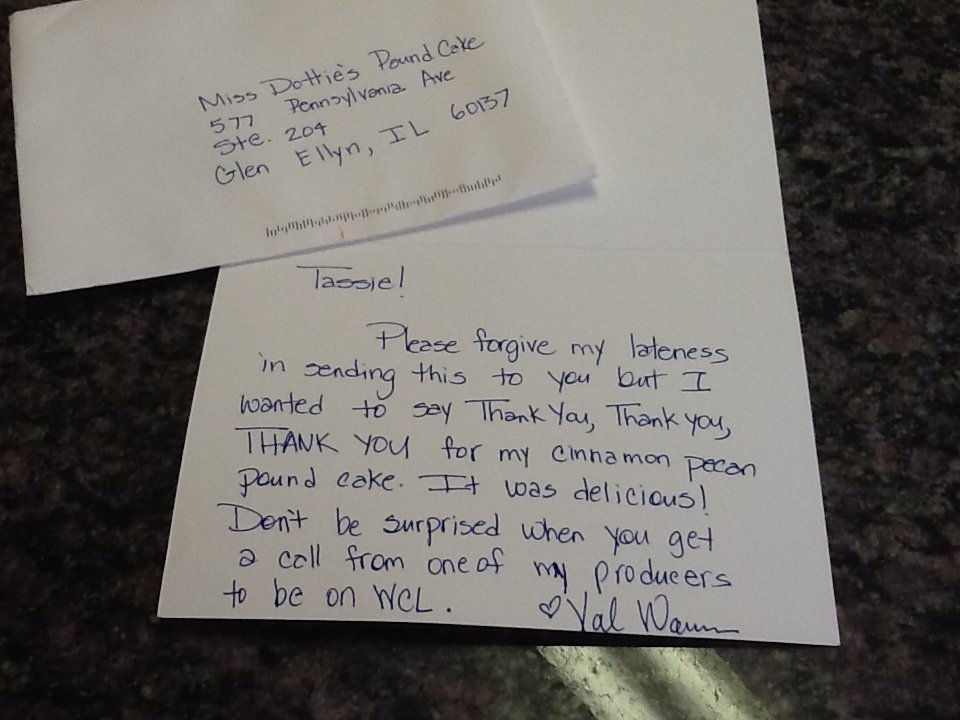 Miss Dottie's Pound Cake
577 Pennsylvania Ave
Ste. 204
Glen Ellyn, IL 60137
Tassie!
Please forgive my lateness
in sending this to you but I
wanted to say Thank You, Thank you,
THANK YOU for my cinnamon pecan
pound cake. It was delicious!
Don't be surprised when you get
a call from one of my producers
to be on WCL. ♡ Val Warner